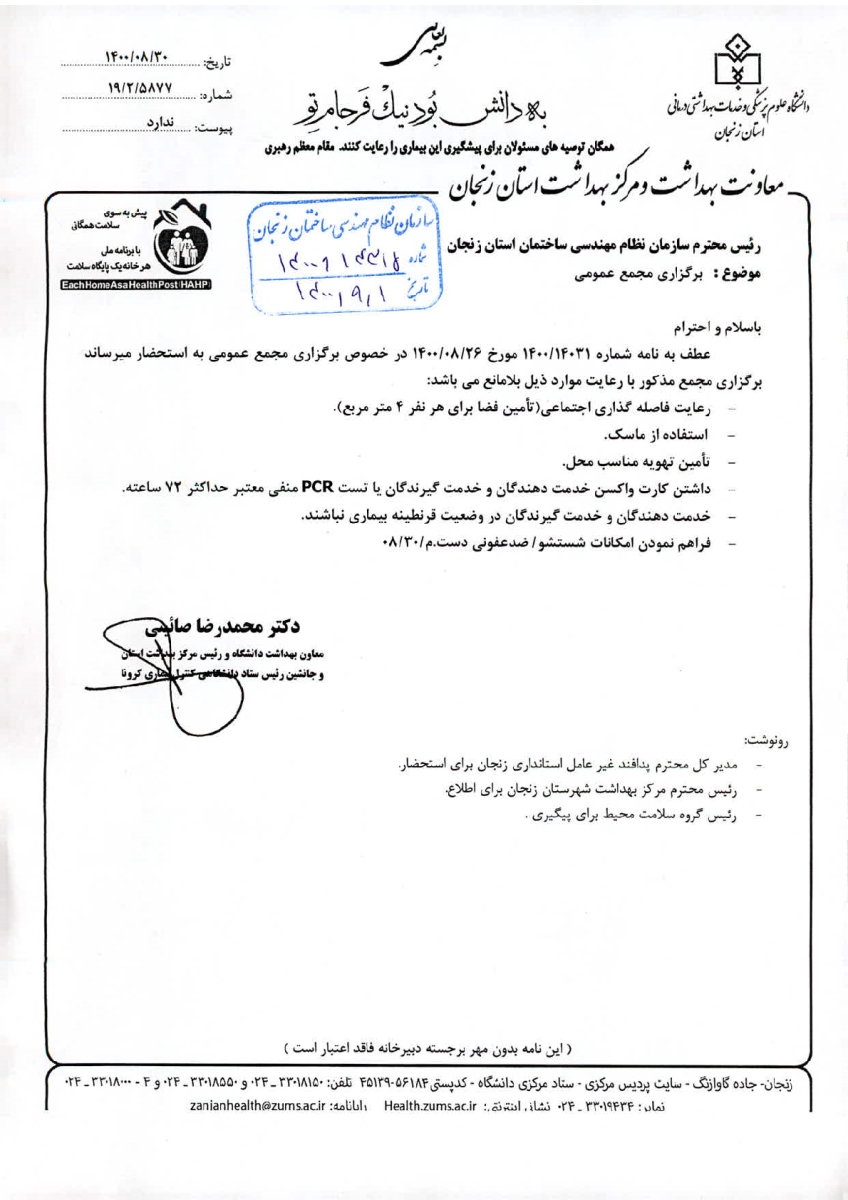 بسمه تعالی
تاریخ: ۱۴۰۰/۰۸/۳۰
شماره: ۱۹/۲/۵۸۷۷
پیوست: ندارد
دانشگاه علوم پزشکی و خدمات بهداشتی درمانی
استان زنجان
به دانش بُود نیک فَرجامِ تو
همگان توصیه های مسئولان برای پیشگیری این بیماری را رعایت کنند. مقام معظم رهبری
معاونت بهداشت و مرکز بهداشت استان زنجان
پیش به سوی
سلامت همگانی
با برنامه ملی
هر خانه یک پایگاه سلامت
EachHomeAsaHealthPost(HAHP)
سازمان نظام مهندسی ساختمان زنجان
شماره
تاریخ ۱۴۰۰/۹/۱
رئیس محترم سازمان نظام مهندسی ساختمان استان زنجان
موضوع : برگزاری مجمع عمومی
باسلام و احترام
عطف به نامه شماره ۱۴۰۰/۱۴۰۳۱ مورخ ۱۴۰۰/۰۸/۲۶ در خصوص برگزاری مجمع عمومی به استحضار میرساند
برگزاری مجمع مذکور با رعایت موارد ذیل بلامانع می باشد:
- رعایت فاصله گذاری اجتماعی(تأمین فضا برای هر نفر ۴ متر مربع).
- استفاده از ماسک.
- تأمین تهویه مناسب محل.
- داشتن کارت واکسن خدمت دهندگان و خدمت گیرندگان یا تست PCR منفی معتبر حداکثر ۷۲ ساعته.
- خدمت دهندگان و خدمت گیرندگان در وضعیت قرنطینه بیماری نباشند.
- فراهم نمودن امکانات شستشو/ ضدعفونی دست.م/۰۸/۳۰
دکتر محمدرضا صائینی
معاون بهداشت دانشگاه و رئیس مرکز بهداشت استان
و جانشین رئیس ستاد دانشگاهی کنترل بیماری کرونا
رونوشت:
- مدیر کل محترم پدافند غیر عامل استانداری زنجان برای استحضار.
- رئیس محترم مرکز بهداشت شهرستان زنجان برای اطلاع.
- رئیس گروه سلامت محیط برای پیگیری .
( این نامه بدون مهر برجسته دبیرخانه فاقد اعتبار است )
زنجان- جاده گاوازنگ - سایت پردیس مرکزی - ستاد مرکزی دانشگاه - کدپستی ۵۶۱۸۴-۴۵۱۳۹ تلفن: ۳۳۰۱۸۱۵۰ ـ ۰۲۴ و ۳۳۰۱۸۵۵۰ ـ ۰۲۴ و ۴ - ۳۳۰۱۸۰۰۰ ـ ۰۲۴
نمابر: ۳۳۰۱۹۴۳۴ ـ ۰۲۴ نشانی اینترنتی: Health.zums.ac.ir رایانامه: zanjanhealth@zums.ac.ir